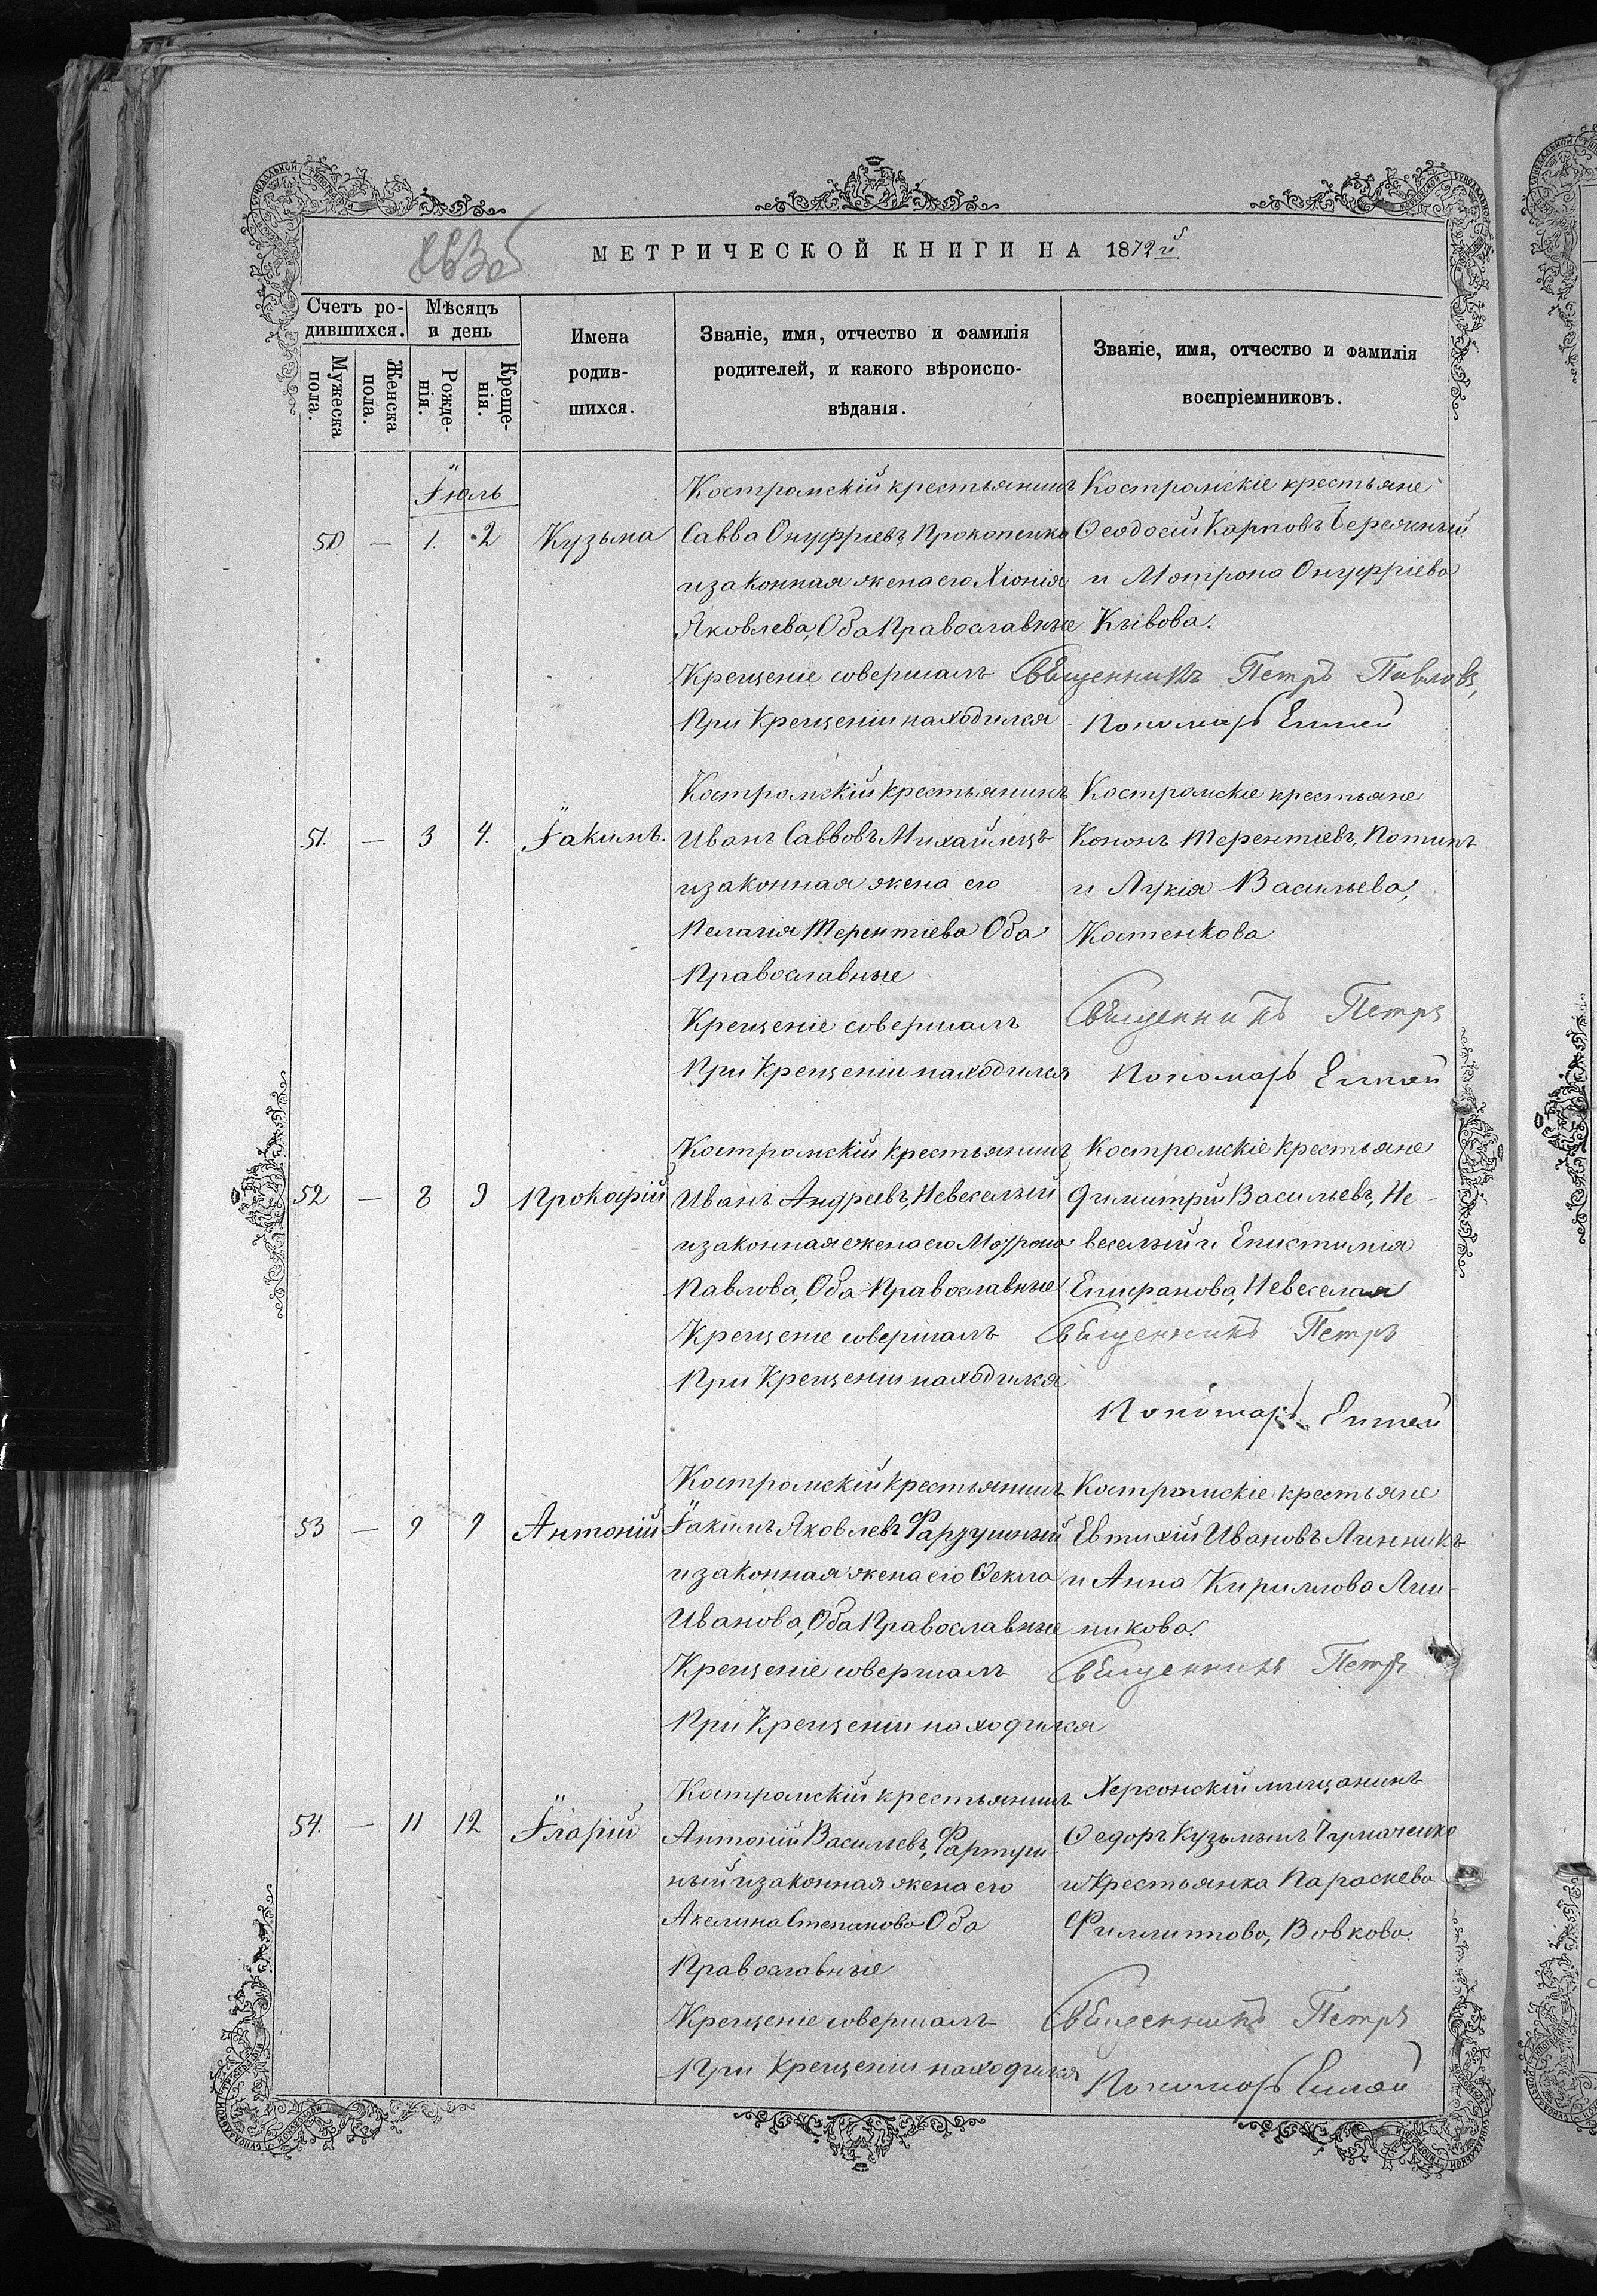 МЕТРИЧЕСКОЙ КНИГИ НА 1872й
Счетъ ро-
дившихся.
Мѣсяцъ
и день
Мужеска
пола.
Женска
пола.
Рожде-
нія.
Креще-
нія.
Имена
родив-
шихся.
Званіе, имя, отчество и фамилія
родителей, и какого вѣроиспо-
вѣданія.
Званіе, имя, отчество и фамилія
воспріемниковъ.
Іюль
50 — 1. 2 Кузьма
Костромскій крестьянинъ
Савва Онуфріевъ, Прокопенко
и законная жена его Хіонія
Яковлева, Оба Православные
Костромскіе крестьяне
Ѳеодосій Карповъ
и Мотрона Онуфріева
Кывова.
Крещеніе совершалъ Священникъ Петръ Павловъ,
При Крещеніи находился Пономарь
51. — 3 4. Іакимъ.
Костромскій крестьянинъ
Иванъ Саввовъ Михайлецъ
и законная жена его
Пелагія Терентіева Оба
Православные
Костромскіе крестьяне
Кононъ Терентіевъ,
и Лукія Васильева,
Костенкова
Крещеніе совершалъ Священникъ Петръ
При Крещеніи находился Пономарь
52 — 8 9 Прокофій
Костромскій крестьянинъ
Иванъ Андреевъ, Невеселый
и законная жена его
Павлова, Оба Православные
Костромскіе крестьяне
Димитрій Васильевъ, Не-
веселый и Епистимія
Епифанова, Невеселая
Крещеніе совершалъ Священникъ Петръ
При Крещеніи находился
Пономарь
53 — 9 9 Антоній
Костромскій крестьянинъ
Іакимъ Яковлевъ
и законная жена его Ѳекла
Иванова, Оба Православные
Костромскіе крестьяне
Евтихій Ивановъ Линникъ
и Анна Кириллова Лин-
никова.
Крещеніе совершалъ Священникъ Петръ
При Крещеніи находился
54. — 11 12 Іларій
Костромскій крестьянинъ
Антоній Васильевъ, Фартуш-
ный и законная жена его
Акелина Степанова Оба
Православные
Херсонскій мищанинъ
Ѳедоръ Кузьминъ Чумаченко
и Крестьянка Параскева
Филлипова, Вовкова.
Крещеніе совершалъ Священникъ Петръ
При Крещеніи находился Пономарь